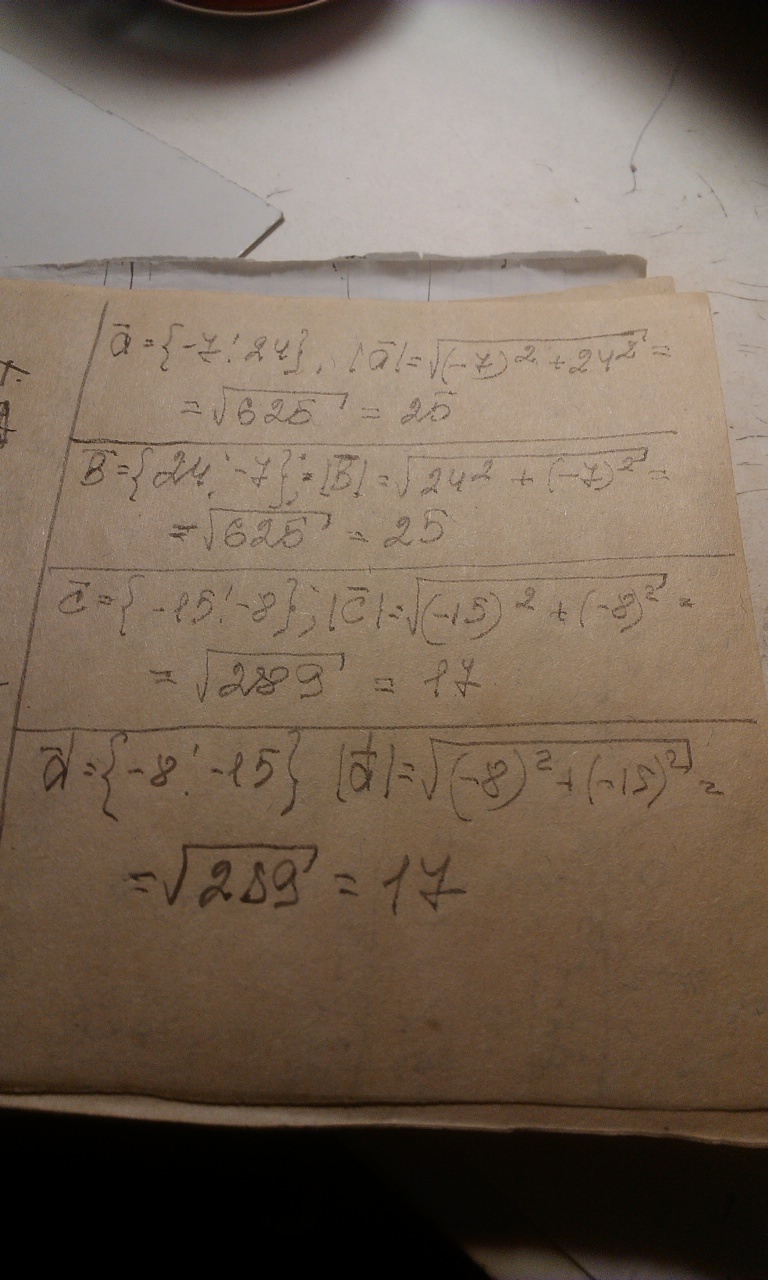 ā = {-7; 24}, |ā| = √(-7)² + 24² =
= √625 = 25
B̄ = {24; -7}; = |B̄| = √24² + (-7)² =
= √625 = 25
c̄ = {-15; -8}; |c̄| = √(-15)² + (-8)² =
= √289 = 17
d̄ = {-8; -15} |d̄| = √(-8)² + (-15)² =
= √289 = 17